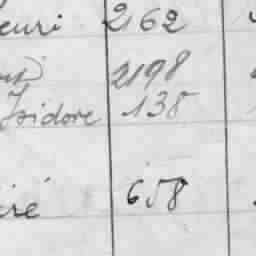 euri 262
2198
Isidore 138
iré 658